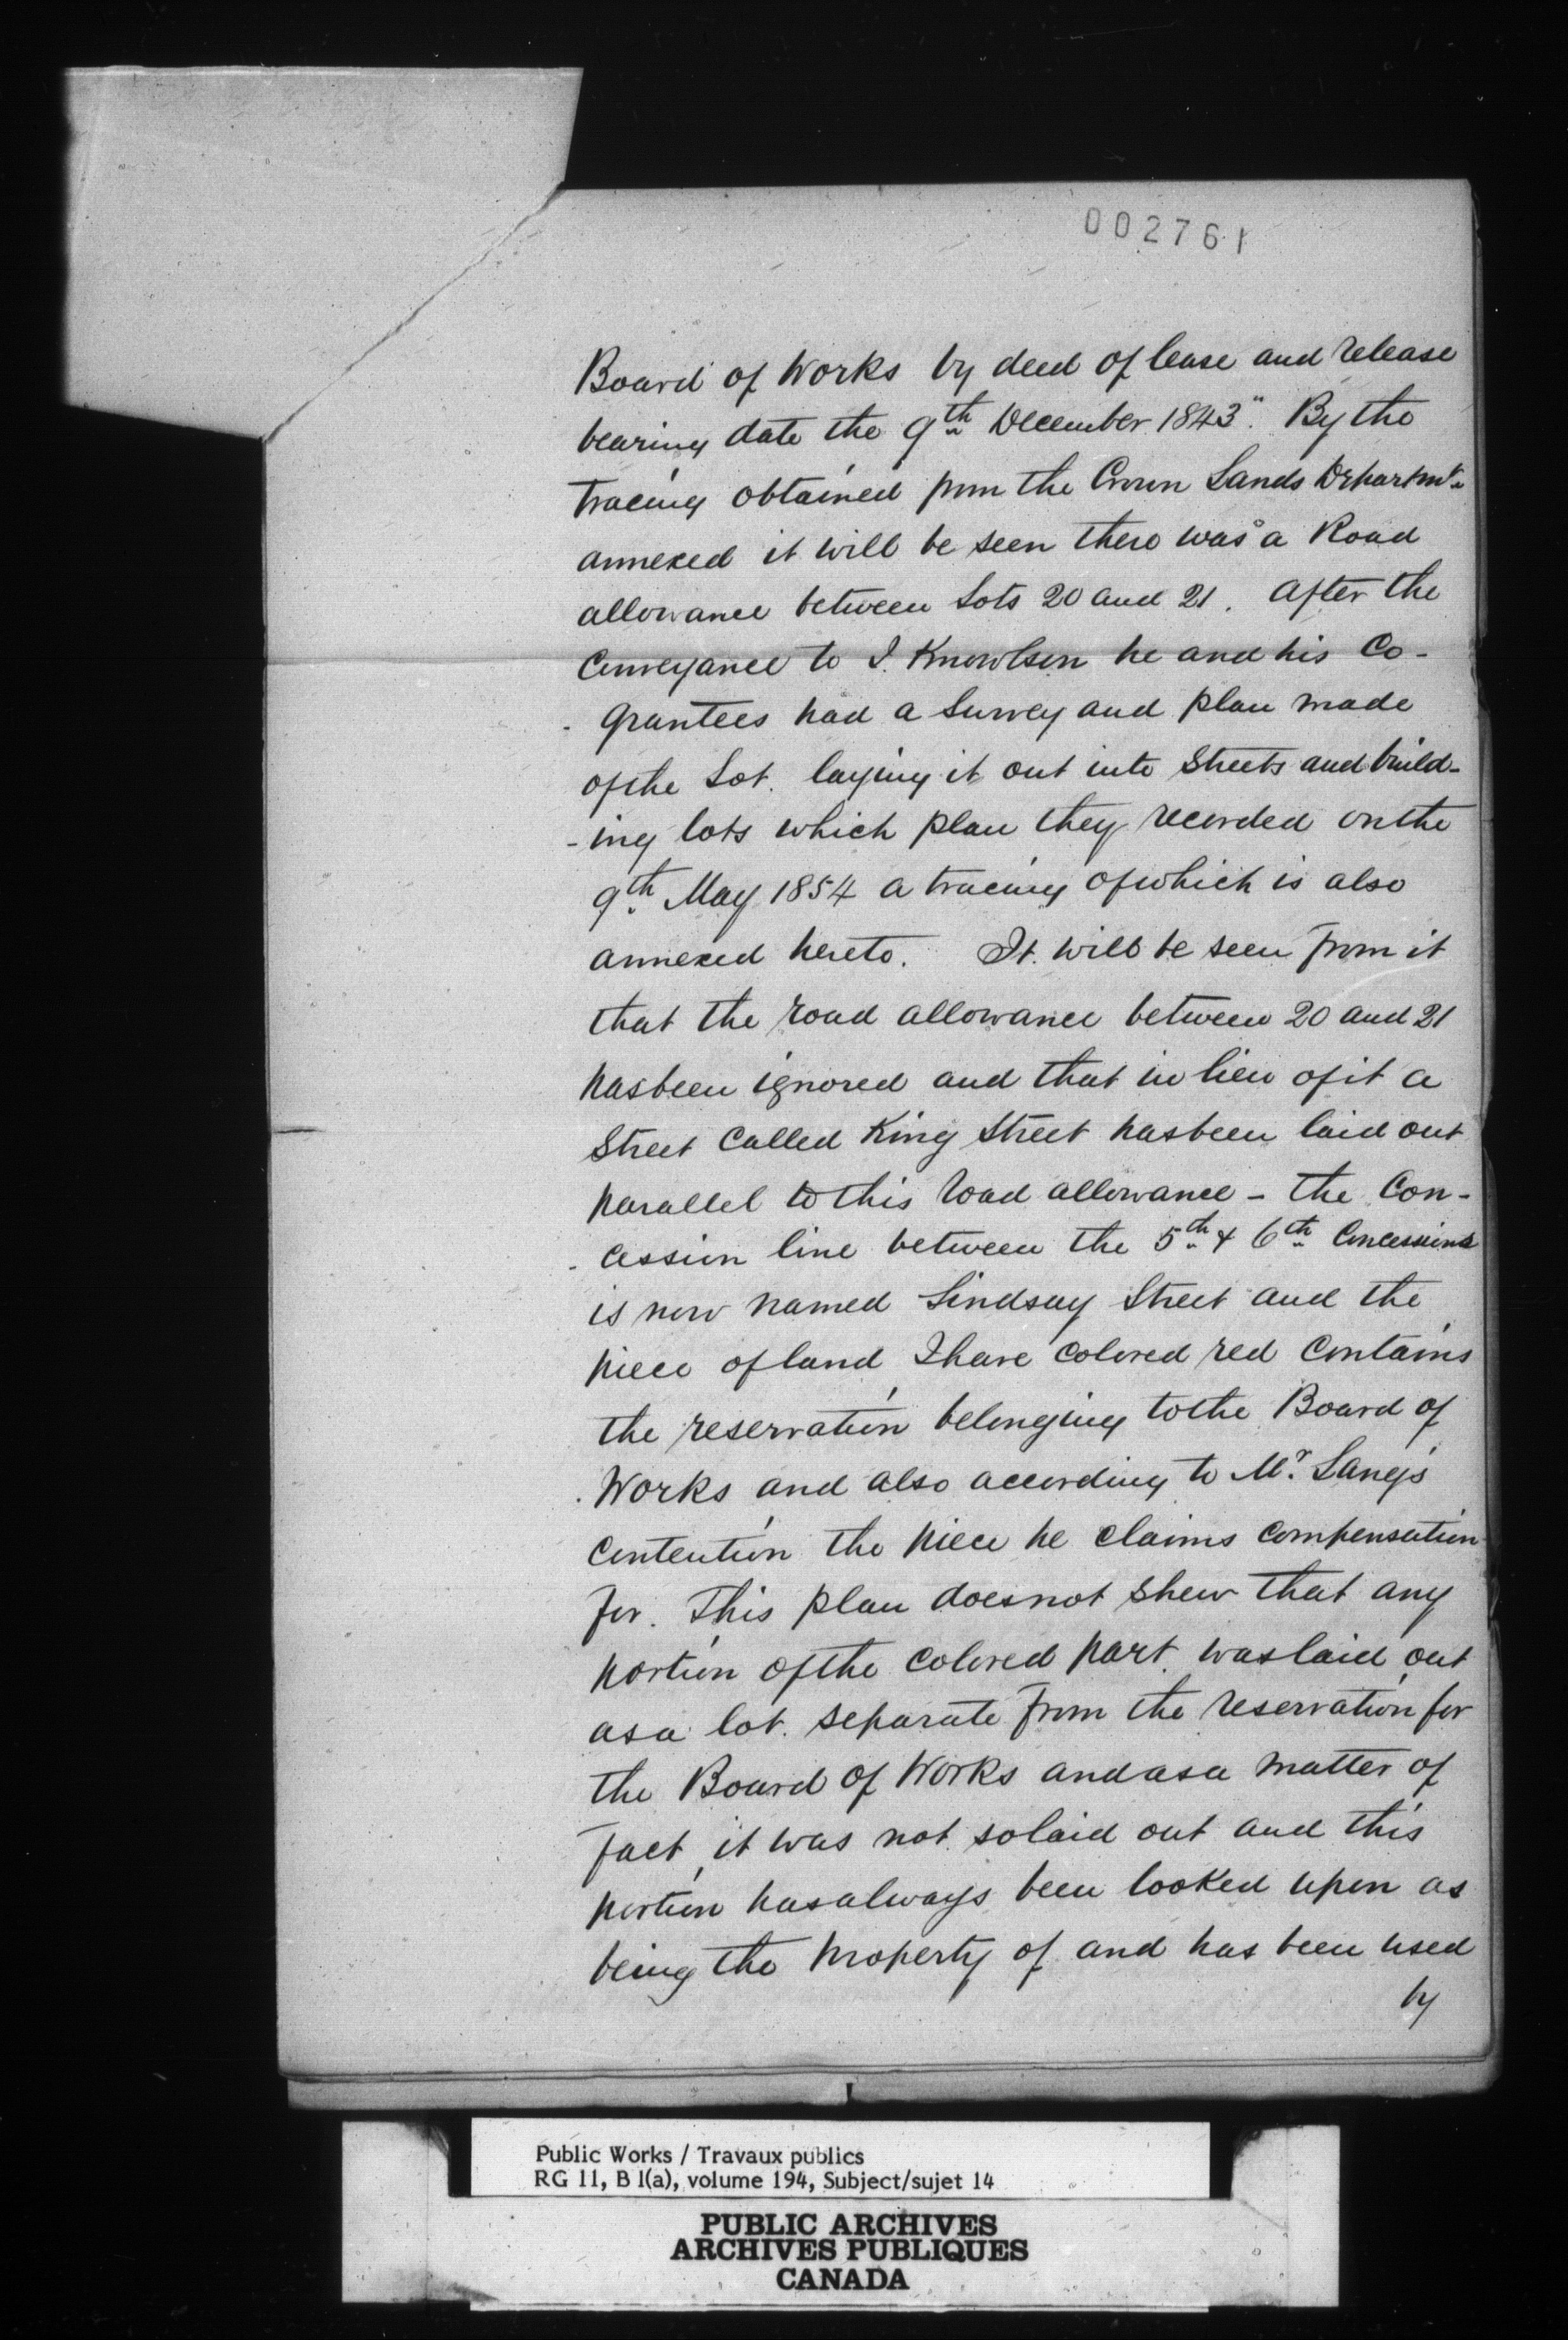 002761
Board of Works by deed of lease and release
bearing date the 9th December 1843". By the
tracing obtained from the Crown Lands Departmt.
annexed it will be seen there was a Road
allowance between Lots 20 and 21. After the
Conveyance to J. Knowlson he and his Co-
-Grantees had a Survey and plan made
of the Lot. laying it out into Streets and build-
-ing lots which plan they recorded on the
9th May 1854 a tracing of which is also
annexed hereto. It will be seen from it
that the road allowance between 20 and 21
has been ignored and that in lieu of it a
Street called King Street has been laid out
parallel to this road allowance - the Con-
-cession line between the 5th & 6th Concessions
is now named Lindsay Street and the
piece of land I have colored red contains
the reservation belonging to the Board of
Works and also according to Mr. Lang's
contention the piece he claims compensation
for. This plan does not shew that any
portion of the colored part was laid out
as a lot separate from the reservation for
the Board of Works and as a matter of
fact, it was not so laid out and this
portion has always been looked upon as
being the property of and has been used
by
Public Works / Travaux publics
RG 11, B 1(a), volume 194, Subject/sujet 14
PUBLIC ARCHIVES
ARCHIVES PUBLIQUES
CANADA